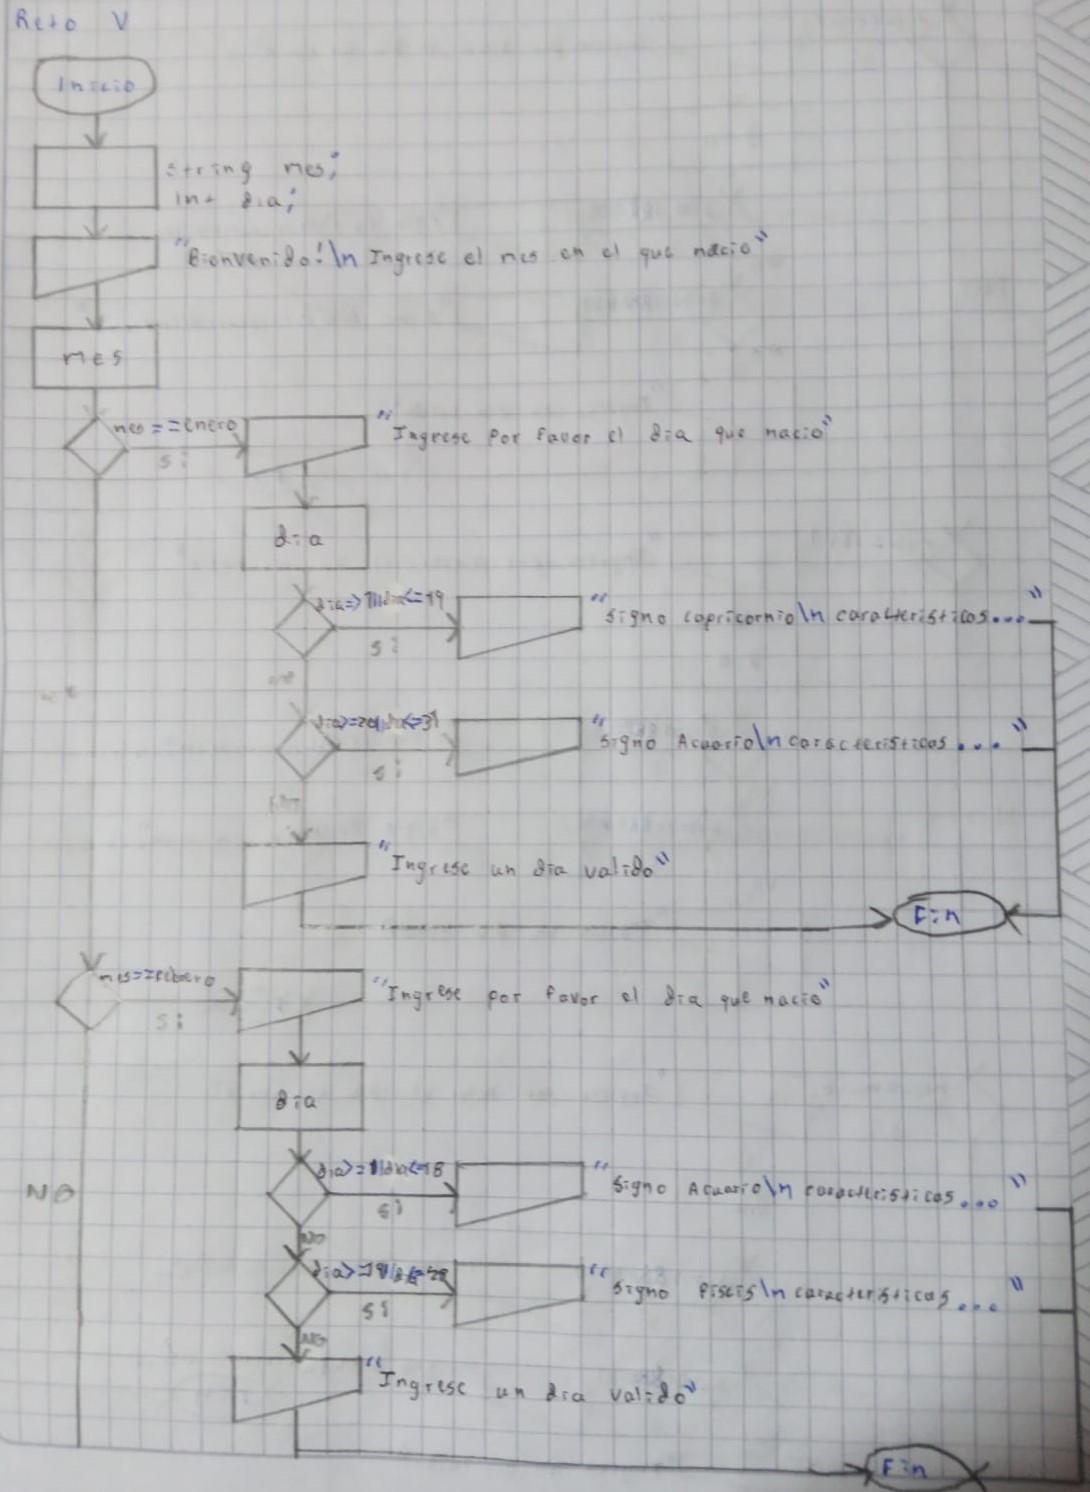 Reto V
Inicio
string mes;
int dia;
"Bienvenido!\n Ingrese el mes en el que nacio"
mes
mes==enero
si
"Ingrese por favor el dia que nacio"
dia
dia=>1||dia<=19
si
"signo capricornio\n caracteristicas..."
no
dia>=20||dia<=31
si
"signo Acuario\n caracteristicas..."
"Ingrese un dia valido"
Fin
mes==febrero
si
"Ingrese por favor el dia que nacio"
dia
dia>=1||dia<=18
si
"signo Acuario\n caracteristicas..."
NO
NO
si
"signo piscis\n caracteristicas..."
NO
"Ingrese un dia valido"
Fin